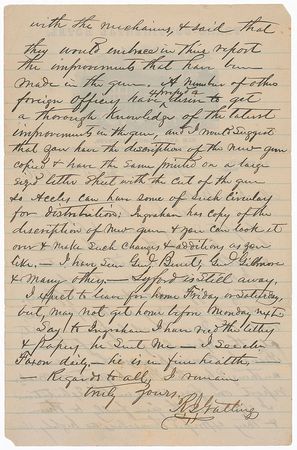 with the mechanism, & said that
they would embrace in their report
the improvements that have been
made in the gun. A number of other
foreign Officers have expressed a desire to get
a thorough knowledge of the latest
improvements in the gun, and I would suggest
that you have the discription of the New gun
copied & have the same printed on a large
sized letter sheet with the cut of the gun
so Accles can have some of such Circulars
for distribution: Ingraham has copy of the
discription of New gun & you can look it
over & make such changes & additions as you
like. — I have seen Genl Benet, Genl Gillmore
& Many others. — Lyford is still away.
I expect to leave for home Friday or Saturday
but, may not get home before Monday next.
Say to Ingraham I have recd the letters
& papers he sent Me — I see
Faxon daily. — he is in fine health, —
— Regards to all, I remain
truly yours,
R J Gatling